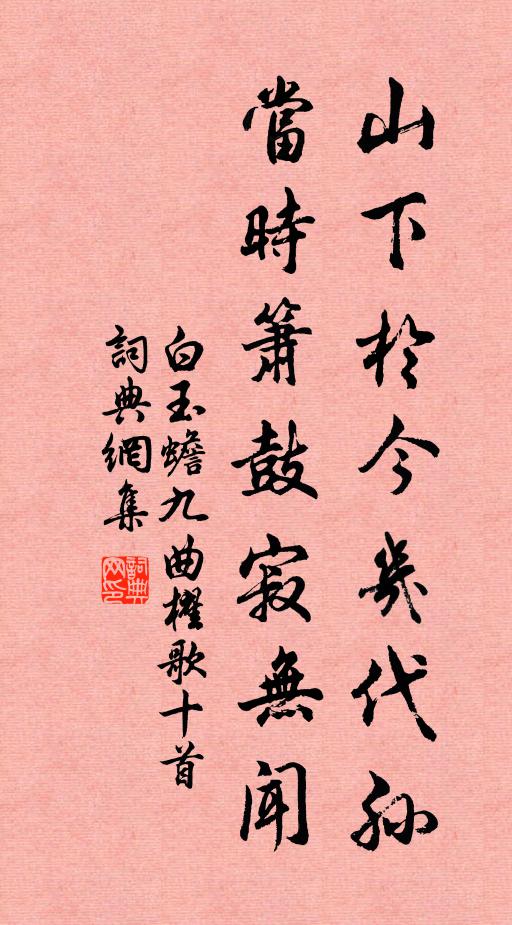 山下於今幾代孫
當時簫鼓寂無聞
白玉蟾九曲櫂歌十首
詞典網集
詞典網印